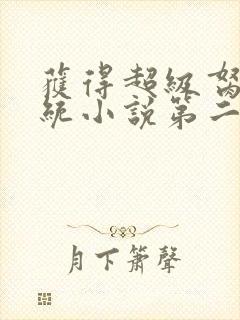 獲得超級
統小說第二
月下簫聲